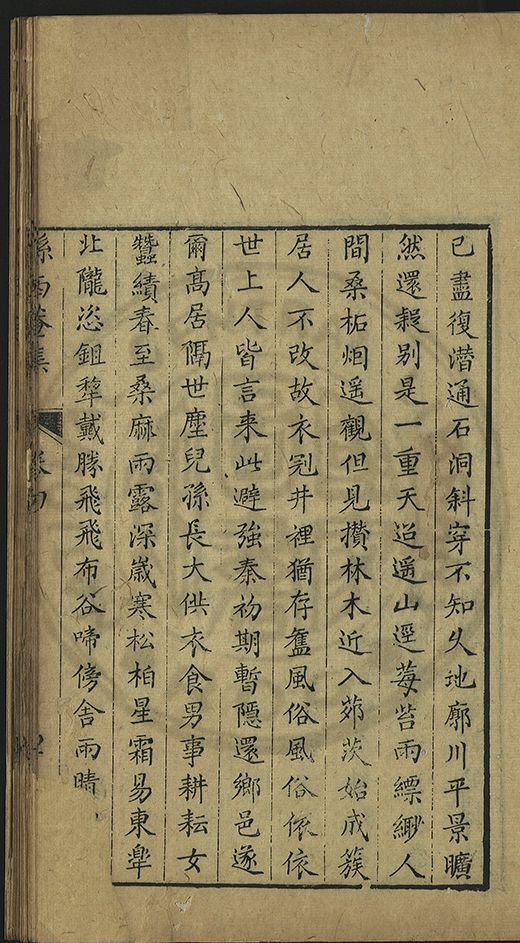 已盡復潛通石洞斜穿不知久地廓川平景曠
然還疑別是一重天迢遥山逕莓苔雨縹緲人
間桑柘烟遥觀但見攅林木近入茆茨始成簇
居人不改故衣冠井裡猶存舊風俗風俗依依
世上人皆言來此避強秦初期暫隱還鄉邑遂
爾髙居隔世塵兒孫長大供衣食男事耕耘女
蠶績春至桑麻雨露深嵗寒松柏星霜易東臯
北隴恣鉏犂戴勝飛飛布谷啼傍舍雨晴
孫西菴集